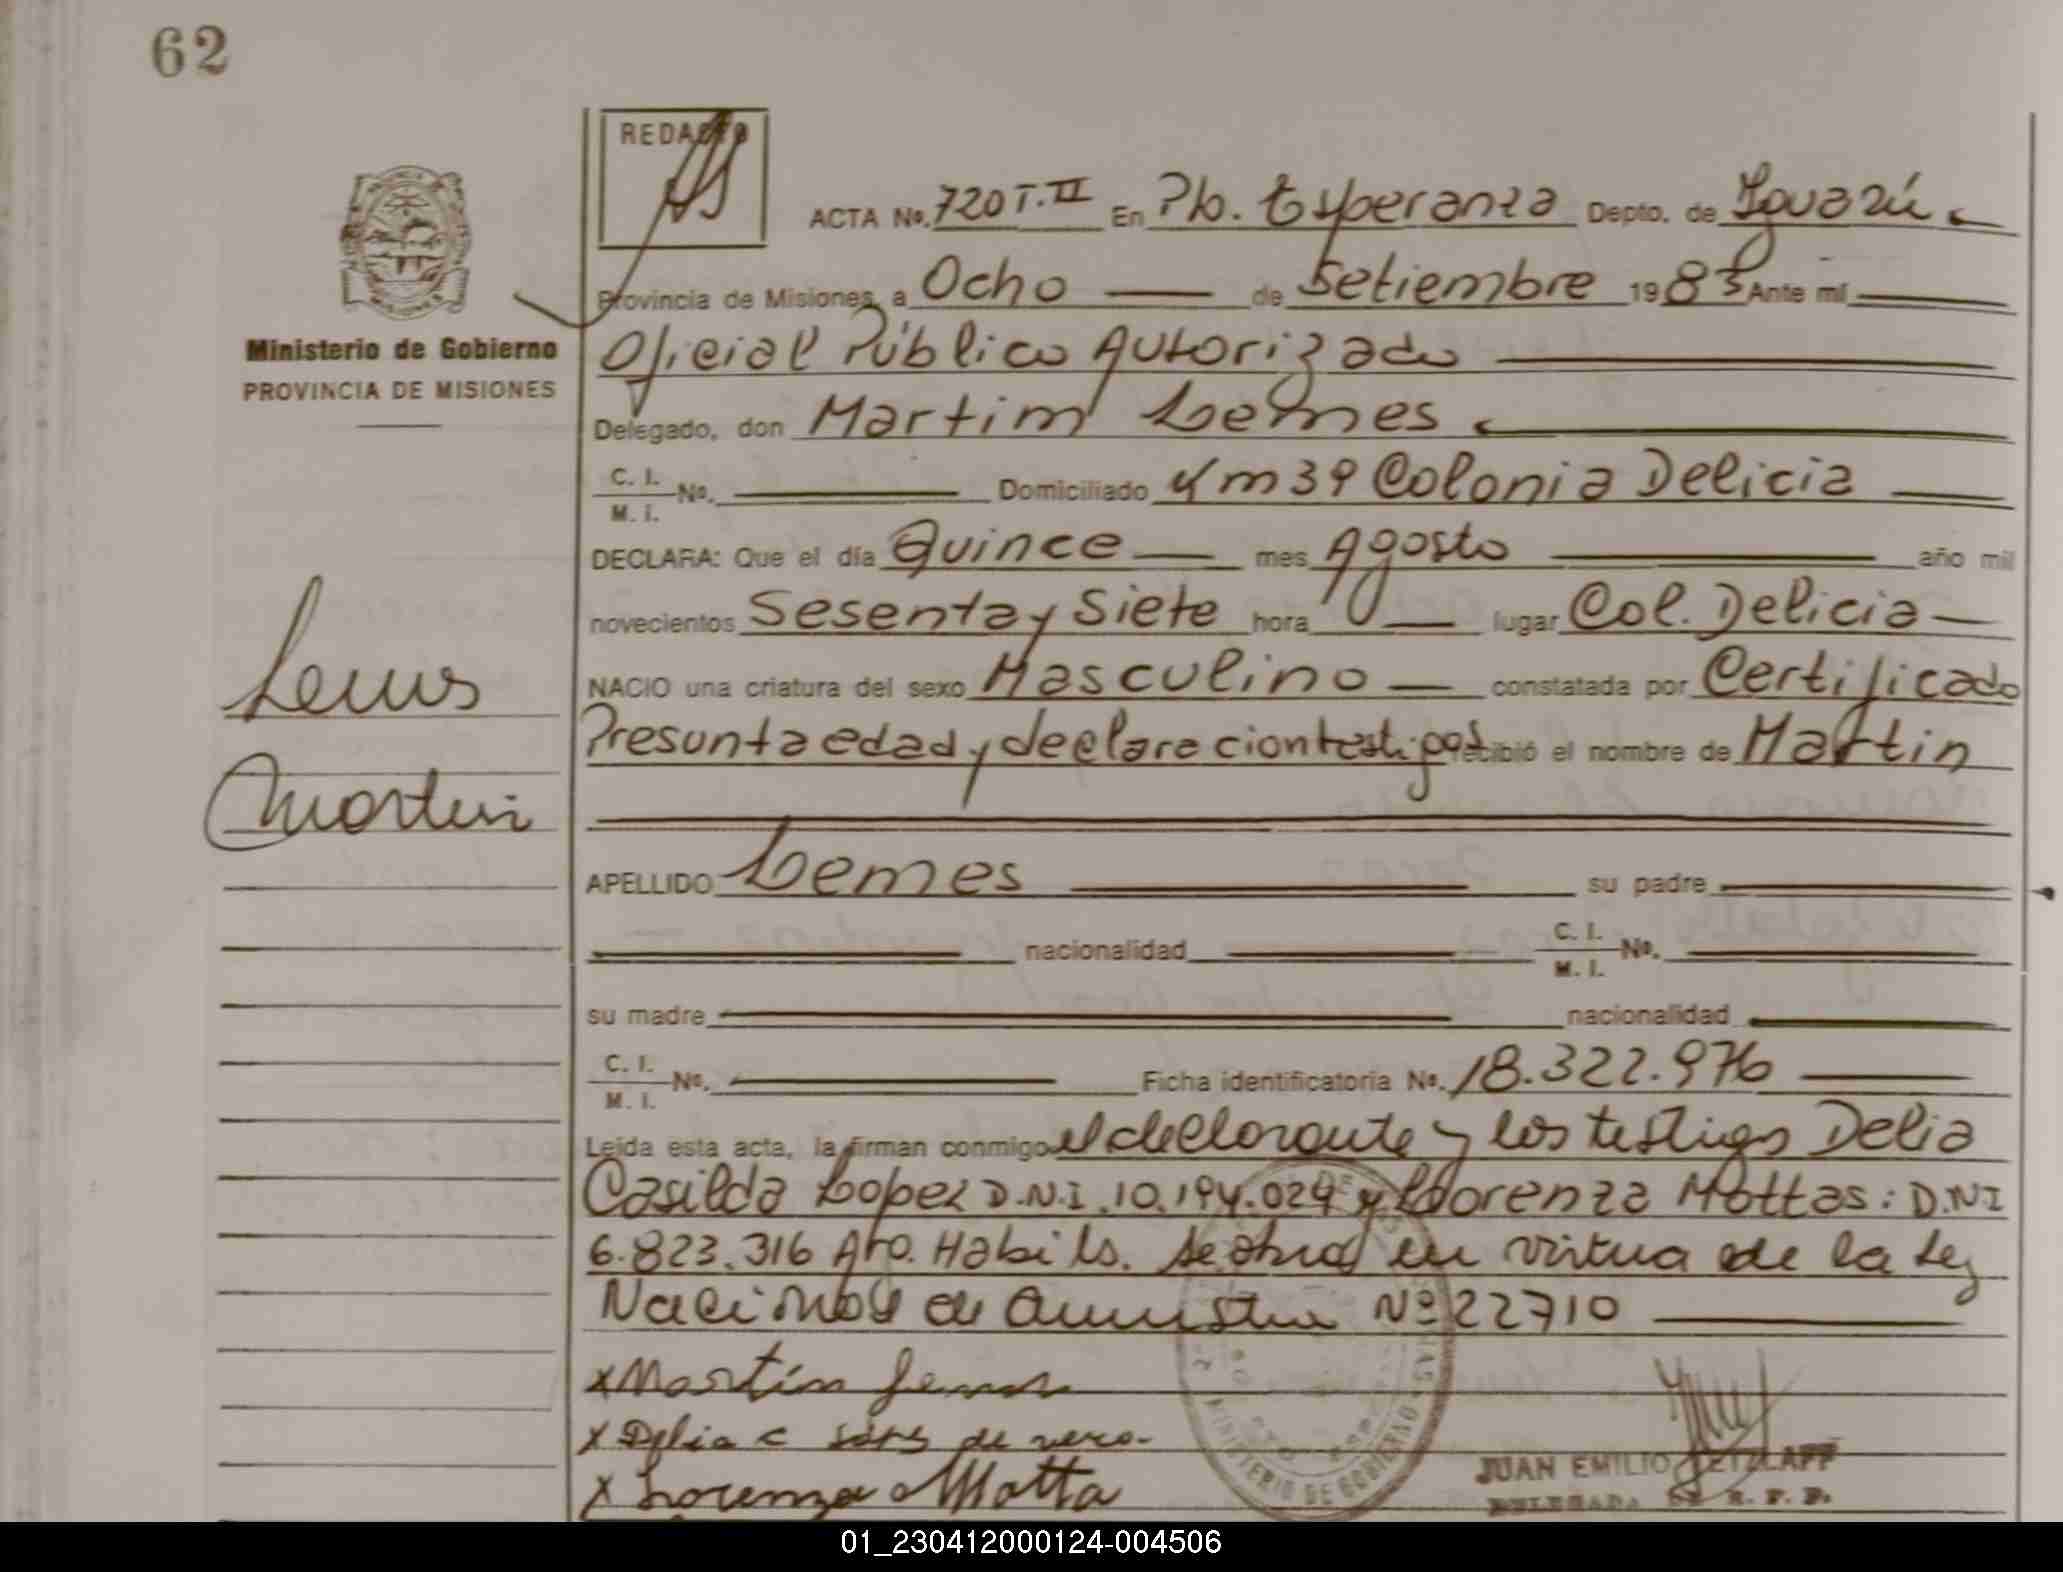 62
REDACTO
ACTA No. 720 T.II En Pto. Esperanza Depto. de Iguazú
Provincia de Misiones, a Ocho de Setiembre 1983 Ante mí
Oficial Público Autorizado
Ministerio de Gobierno
PROVINCIA DE MISIONES
Delegado, don Martim Lemes
C. I. M. I. No. Domiciliado Km 39 Colonia Delicia
DECLARA: Que el día Quince mes Agosto año mil
novecientos Sesenta y Siete hora lugar Col. Delicia
Lemes
NACIO una criatura del sexo Masculino constatada por Certificado
Presunta edad y declaracion testigos recibió el nombre de Martin
Martin
APELLIDO Lemes su padre
nacionalidad C. I. M. I. No.
su madre nacionalidad
C. I. M. I. No. Ficha identificatoria No. 18.322.976
Leída esta acta, la firman conmigo el declarante y los testigos Delia
Casilda Lopez D.N.I. 10.194.029 y Lorenza Mottas: D.N.I
6.823.316 Aro. Habils. Se labra en virtud de la Ley
Nacional de Amnistia Nº 22710
x Martín Lemes
x Delia c de vero.
x Lorenza Motta
JUAN EMILIO TETZLAFF
DELEGADA DE R. P. P.
MINISTERIO DE GOBIERNO
01_230412000124-004506